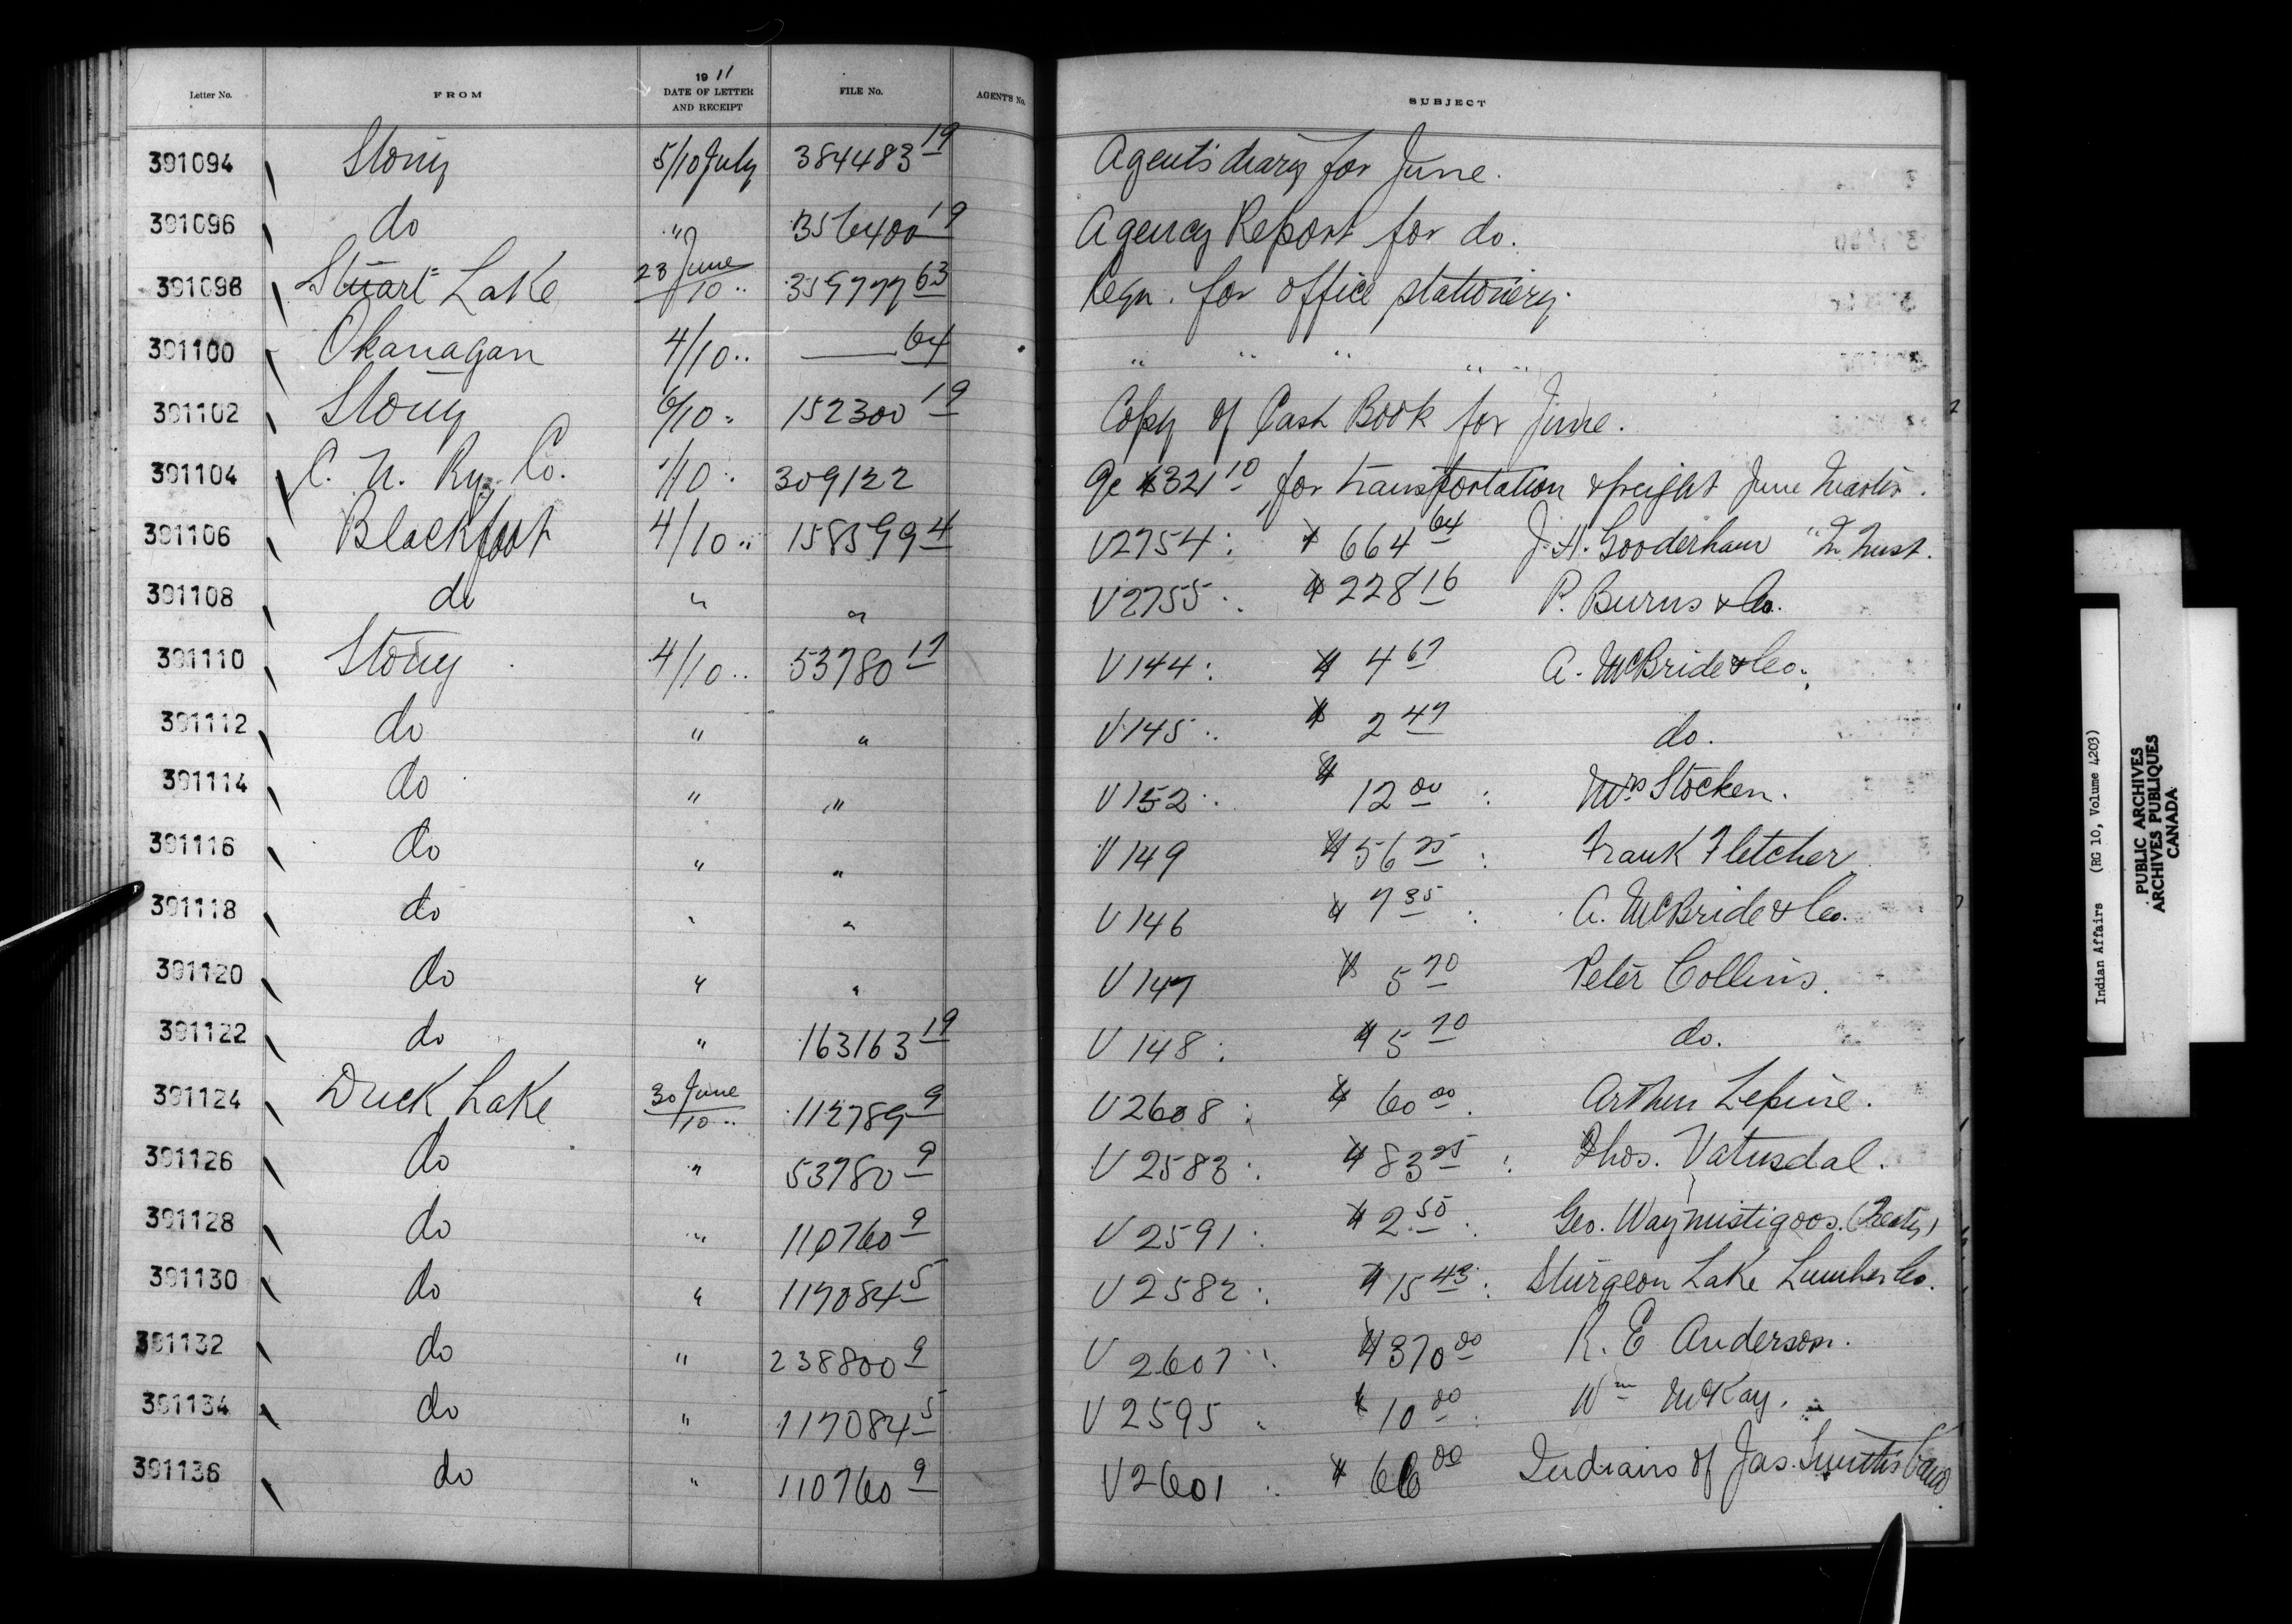 Letter No. FROM 1911 DATE OF LETTER AND RECEIPT FILE No. AGENT'S No. SUBJECT
391094 Stony 5/10 July 384483 19 Agent's diary for June.
391096 do " 356400 19 Agency Report for do.
391098 Stuart Lake 28 June/10 " 359777 63 Reqn. for office stationery.
391100 Okanagan 4/10 " — 64 " " " " "
391102 Stony 6/10 " 152300 19 Copy of Cash Book for June.
391104 C. N. Ry. Co. 1/10 " 309122 $321 10 for transportation & freight June
391106 Blackfoot 4/10 " 158599 4 V2754: $664 64 J. H. Gooderham "In Trust.
391108 do " " V2755: $228 16 P. Burns & Co.
391110 Stony 4/10 " 53780 19 V144: $4 67 A. McBride & Co.
391112 do " " V145: $2 47 do.
391114 do " " V152: $12 00: Mrs Stocken.
391116 do " " V149 $56 25: Frank Fletcher
391118 do " " V146 $7 35: A. McBride & Co.
391120 do " " V147 $5 70 Peter Collins.
391122 do " 163163 19 V148: $5 70 do.
391124 Duck Lake 30 June/10 " 112789 9 V2608: $60 00. Arthur Lepine.
391126 do " 53780 9 V2583: $83 25: Thos. Vatusdal.
391128 do " 110760 9 V2591: $2 50: Geo. Waymistigoos. (Treaty)
391130 do " 117084 5 V2582: $15 43: Sturgeon Lake Lumber Co.
391132 do " 238800 9 V2607: $370 00 R. E Anderson.
391134 do " 117084 5 V2595: $10 00: Wm McKay.
391136 do " 110760 9 V2601: $66 00 Indians of Jas. Smith's Band
Indian Affairs (RG 10, Volume 4203)
PUBLIC ARCHIVES
ARCHIVES PUBLIQUES
CANADA